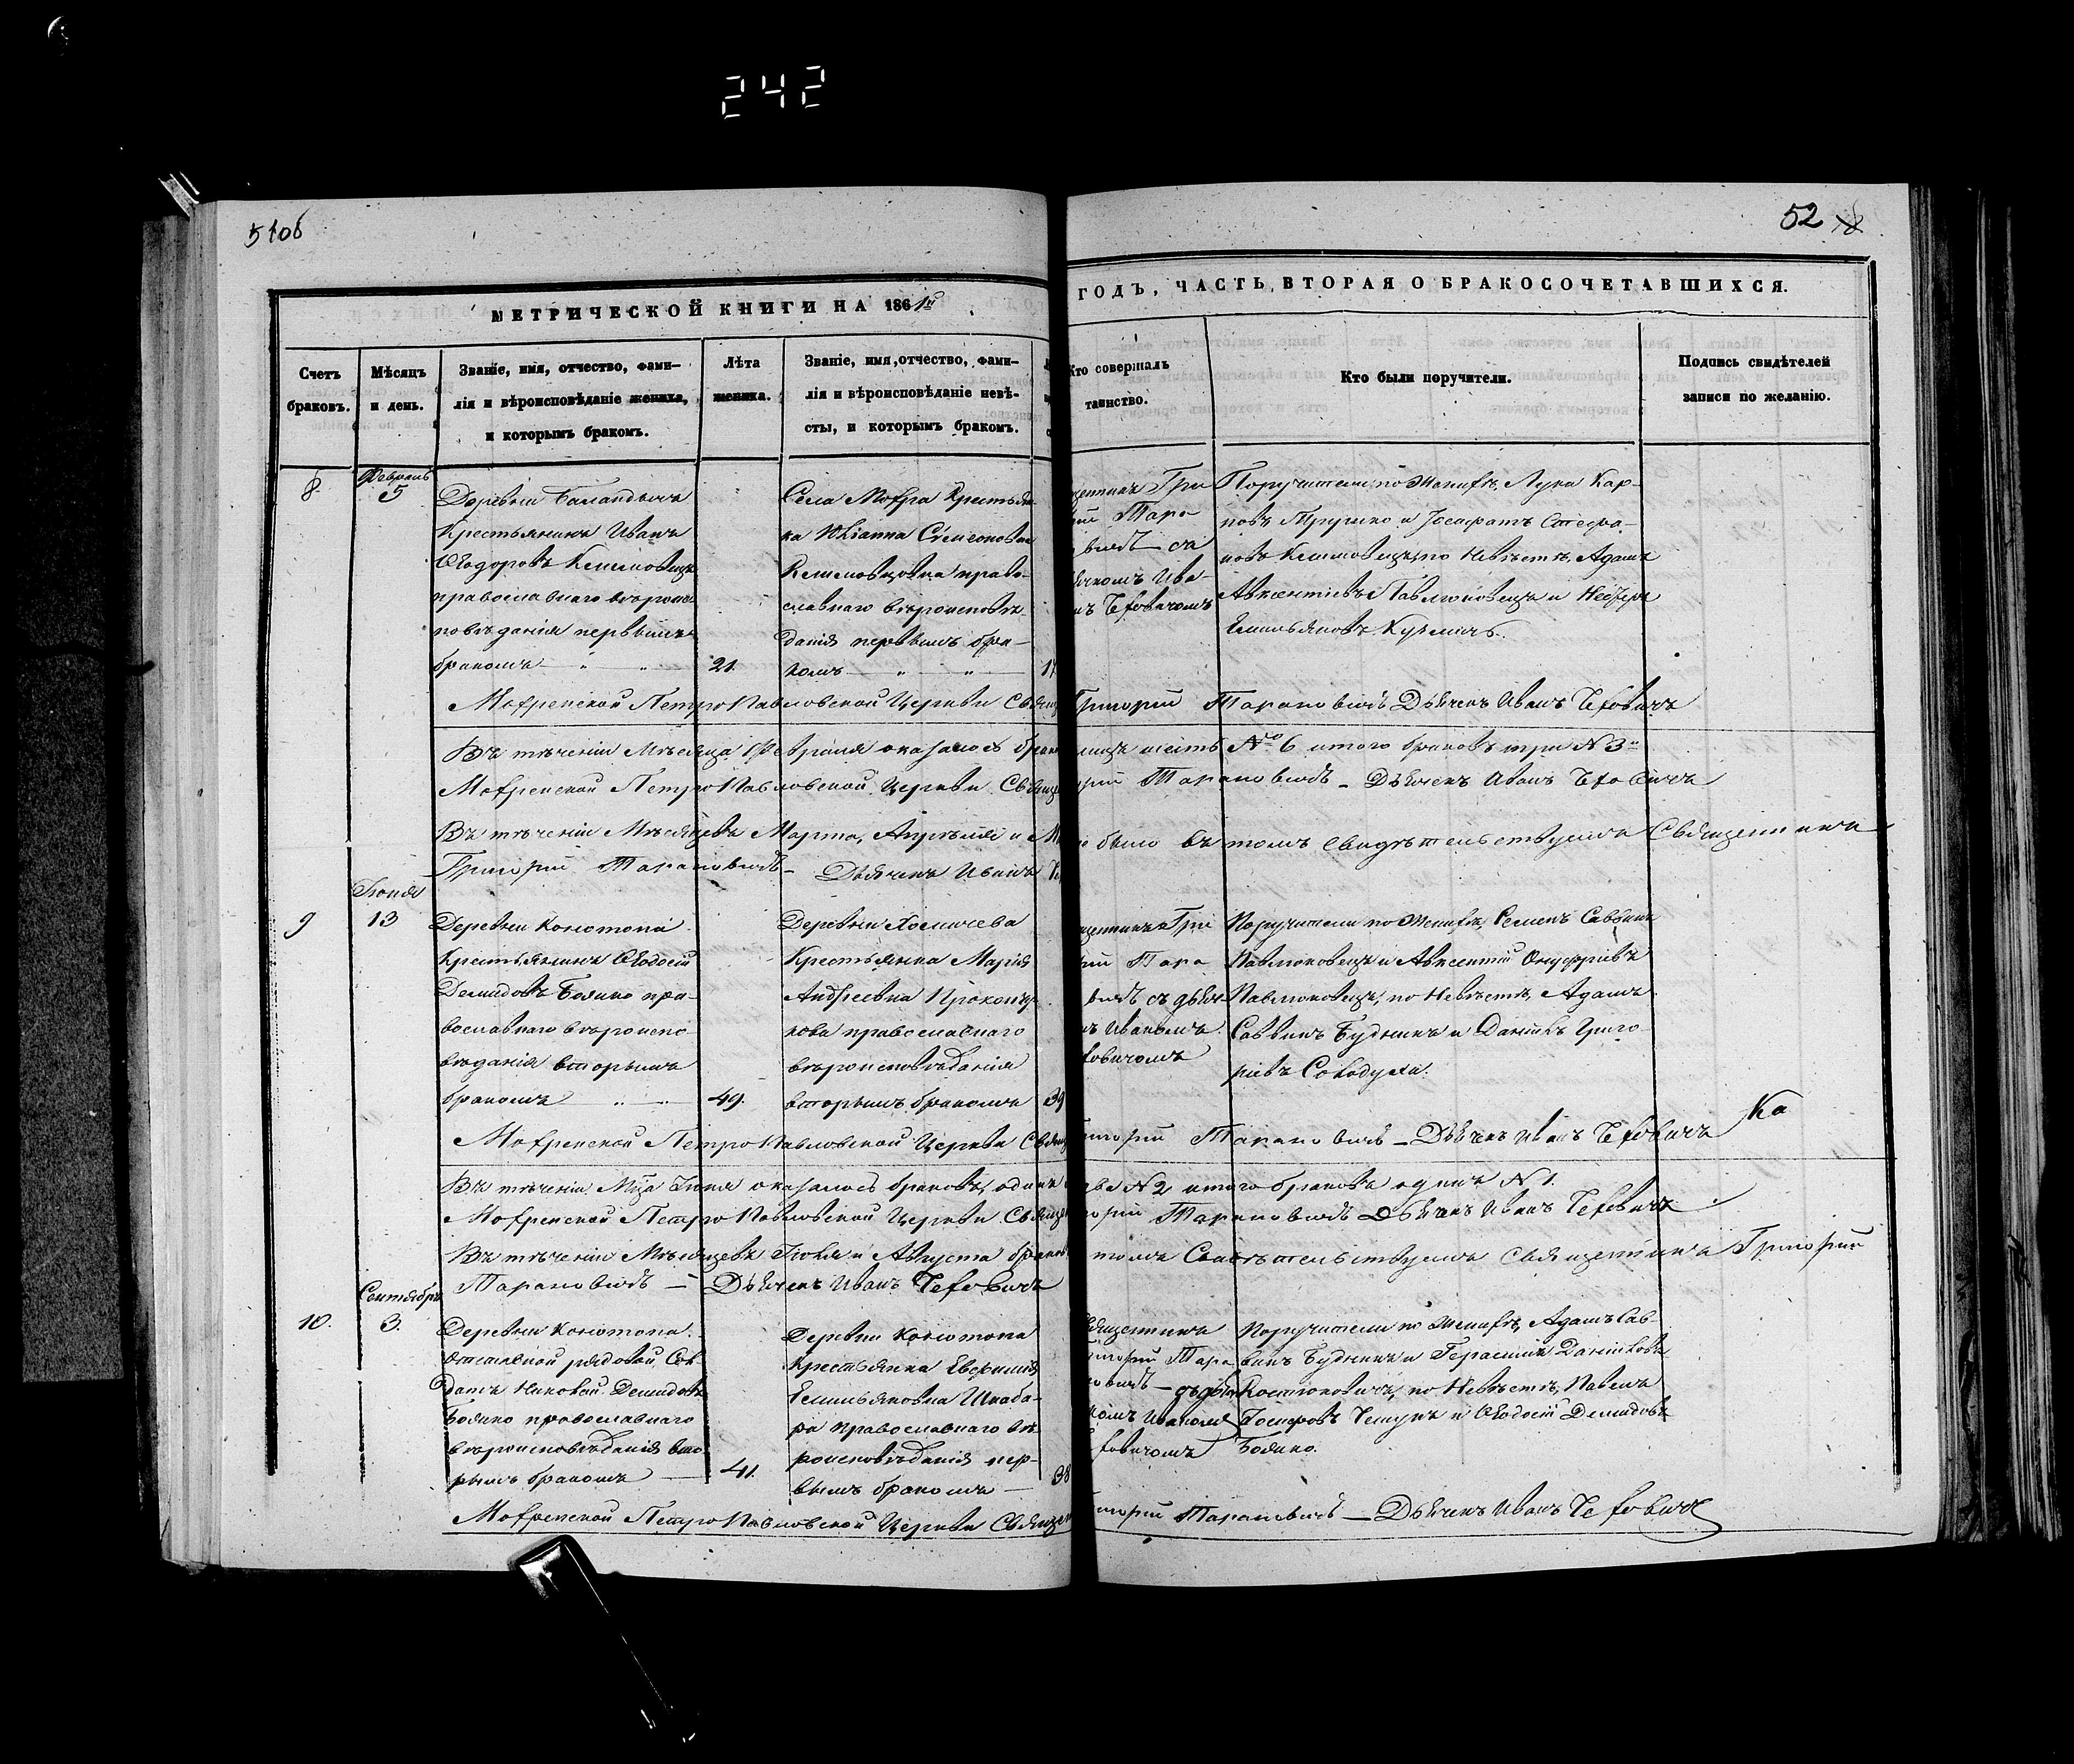 242
51об
52
МЕТРИЧЕСКОЙ КНИГИ НА 1861й
ГОДЪ, ЧАСТЬ ВТОРАЯ О БРАКОСОЧЕТАВШИХСЯ.
Счетъ
браковъ.
Мѣсяцъ
и день.
Званіе, имя, отчество, фами-
лія и вѣроисповѣданіе жениха,
и которымъ бракомъ.
Лѣта
жениха.
Званіе, имя, отчество, фами-
лія и вѣроисповѣданіе невѣ-
сты, и которымъ бракомъ.
Кто совершалъ
таинство.
Кто были поручители.
Подпись свидѣтелей
записи по желанію.
8.
Февраль
5
Деревни
Крестьянинъ Иванъ
Ѳеодоровъ
православнаго вѣроис
повѣданія первымъ
бракомъ
21.
Села Мохра Крестьян-
ка Юліанна Сѵмеонова
православнаго
славнаго вѣроисповѣ-
данія первымъ бра-
комъ
17
щенникъ Гри
рій Тара
вичъ съ
ячкомъ Ива-
Поручители: по Женихѣ, Лука Кар-
повъ и Іосафатъ Стефа-
новъ по Невѣстѣ, Адамъ
Авксентіевъ Павлюковецъ и
Емильяновъ Кузмичъ.
Мохренской Петропавловской Церкви Свящ
Григорій Тарановичъ Дьячекъ Иванъ
Въ теченіи Мѣсяца Февраля оказалось брако
лицъ шесть № 6 итого браковъ три № 3
Мохренской Петропавловской Церкви Священ
рій Тарановичъ – Дьячекъ Иванъ
Въ теченіи Мѣсяцевъ Марта, Апрѣля и М
о было въ томъ свидѣтельствуемъ Священникъ
Григорій Тарановичъ – Дьячекъ Иванъ
9
Іюня
13
Деревни Конотопа
Крестьянинъ Ѳеодосій
Демидовъ Бояко пра-
вославнаго вѣроиспо
вѣданія вторымъ
бракомъ
49.
Деревни Хомичева
Крестьянка Марія
Андреевна Прокопу-
кова православнаго
вѣроисповѣданія
вторымъ бракомъ
39
щенникъ Гри
рій Тара
вичъ съ дьяч
ъ Иваномъ
Поручители по Женихѣ, Семенъ Саввинъ
Павлюковецъ и Авксентій Онуфріевъ
Павлюковецъ, по Невѣстѣ, Адамъ
Саввинъ Будникъ и Даніилъ Григо
ріевъ
Мохренской Петропавловской Церкви Священ
игорій Тарановичъ – Дьячекъ Иванъ
Ка
Въ теченіи Мца Іюня оказалось браковъ, одинъ
два № 2 итого браковъ одинъ № 1.
Мохренской Петропавловской Церкви Священ
горій Тарановичъ Дьячекъ Иванъ
Въ теченіи Мѣсяцевъ Іюля и Августа браков
томъ Свидѣтельствуемъ Священникъ Григорій
Тарановичъ – Дьячекъ Иванъ
10.
Сентябрь
3.
Деревни Конотопа
Отставной рядовой Сол-
датъ Николай Демидовъ
Бояко православнаго
вѣроисповѣданія вто-
рымъ бракомъ
41.
Деревни Конотопа
Крестьянка Евфимія
Емильяновна Шкаба-
ра православнаго вѣ-
роисповѣданія пер-
вымъ бракомъ
38
вященникъ
игорій Тара
новичъ – съ дьяч
комъ Иваномъ
Поручители по Женихѣ, Адамъ Сав-
винъ Будникъ и Герасимъ Даніиловъ
Костюковичъ, по Невѣстѣ, Павелъ
и Ѳеодосій Демидовъ
Бояко.
Мохренской Петропавловской Церкви Священ
игорій Тарановичъ – Дьячекъ Иванъ